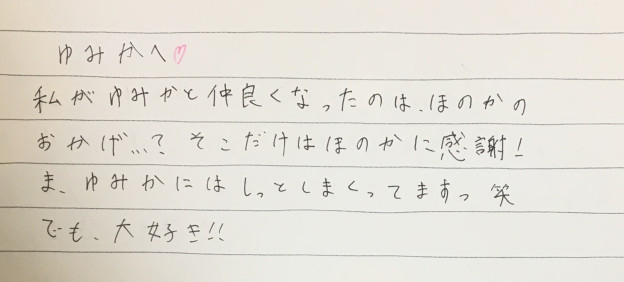 ゆみかへ♡
私がゆみかと仲良くなったのは、ほのかの
おかげ...? そこだけはほのかに感謝!
ま、ゆみかにはしっとしまくってますっ笑
でも、大好き!!